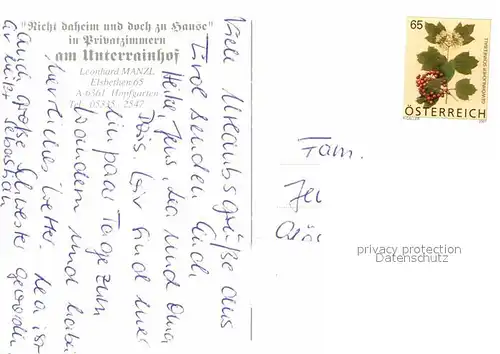 "Nicht daheim und doch zu Hause"
in Privatzimmern
am Unterrainhof
Leonhard MANZL
Elsbethen 65
A-6361 Hopfgarten
Tel. 05335 2547
Viele Urlaubsgrüße aus
Tirol senden Euch
Heike, Jens, Lea und Oma
Wir sind hier
ein paar Tage zum
Wandern und haben
herrliches Wetter. Lea ist
auch große Schwester geworden
Sebastian
65
GEWÖHNLICHER SCHNEEBALL
ÖSTERREICH
2007
Fam.
Je
privacy protection
Datenschutz